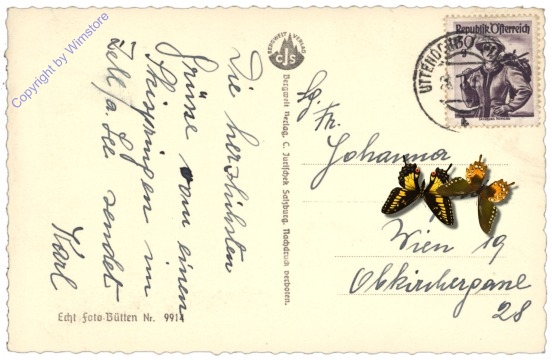 Copyright by Wimstore
Die herzlichsten
Grüße vom einen
Skispringen in
Zell/a. See sendet
Karl
Echt Foto-Bütten Nr. 9914
BERGWELT VERLAG
CJS
Bergwelt Verlag, C. Jurischek Salzburg. Nachdruck verboten.
Republik Österreich
UTTENDORF
Sg. Frl.
Johanna
Wien 19
Obkirchergasse
28